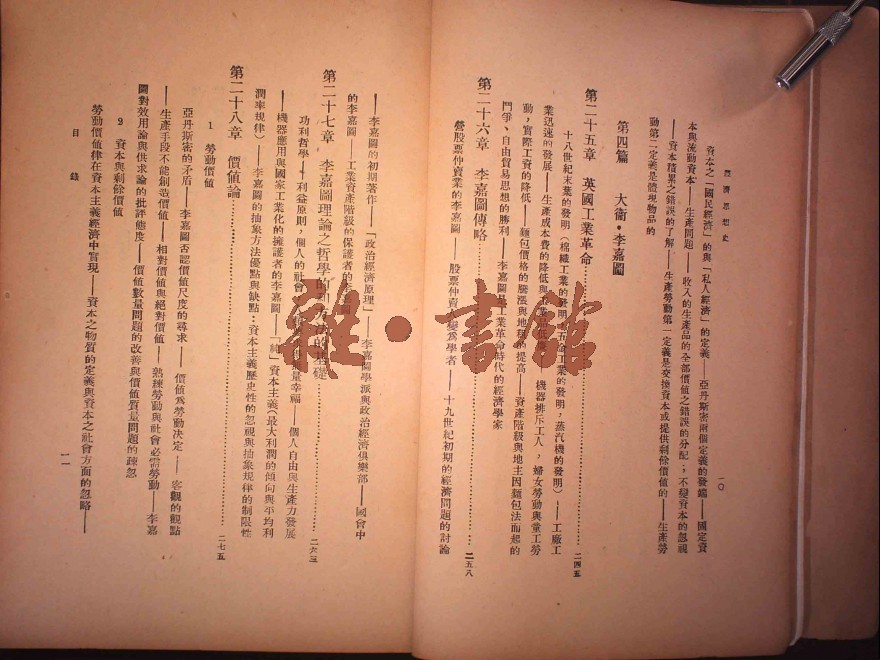 經濟思想史
一〇
資本之「國民經濟」的與「私人經濟」的定義——亞丹斯密兩個定義的發端——固定資
本與流動資本——生產問題——收入的生產品的全部價值之錯誤的分配；不變資本的忽視
——資本積累之錯誤的了解——生產勞動第一定義是交換資本或提供剩餘價值的——生產勞
動第二定義是體現物品的
第四篇 大衛·李嘉圖
第二十五章 英國工業革命……二四五
十八世紀末葉的發明（棉織工業的發明，五金工業的發明，蒸汽機的發明）——工廠工
業迅速的發展——生產成本費的降低與 機器排斥工人，婦女勞動與童工勞
動，實際工資的降低——麵包價格的騰漲與地租的提高——資產階級與地主因麵包法而起的
鬥爭、自由貿易思想的勝利——李嘉圖是工業革命時代的經濟學家
第二十六章 李嘉圖傳略……二五八
營股票仲賣業的李嘉圖——股票仲賣 變為學者——十九世紀初期的經濟問題的討論
——李嘉圖的初期著作——「政治經濟原理」——李嘉圖學派與政治經濟俱樂部——國會中
的李嘉圖——工業資產階級的保護者的李嘉圖
第二十七章 李嘉圖理論之哲學的 的基礎……二六三
功利哲學——利益原則，個人的社會 量幸福——個人自由與生產力發展
——機器應用與國家工業化的擁護者的李嘉圖——「純」資本主義（最大利潤的傾向與平均利
潤率規律）——李嘉圖的抽象方法優點與缺點：資本主義歷史性的忽視與抽象規律的制限性
第二十八章 價值論……二七五
1 勞動價值
亞丹斯密的矛盾——李嘉圖否認價值尺度的尋求——價值為勞動決定——客觀的觀點
——生產手段不能創造價值——相對價值與絕對價值——熟練勞動與社會必需勞動——李嘉
圖對效用論與供求論的批評態度——價值數量問題的改善與價值質量問題的疎忽
2 資本與剩餘價值
勞動價值律在資本主義經濟中實現——資本之物質的定義與資本之社會方面的忽略——
目錄
一一
雜·書館